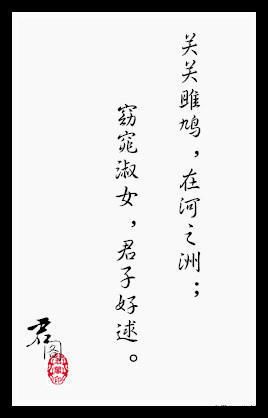 关关雎鸠，在河之洲；
窈窕淑女，君子好逑。
君